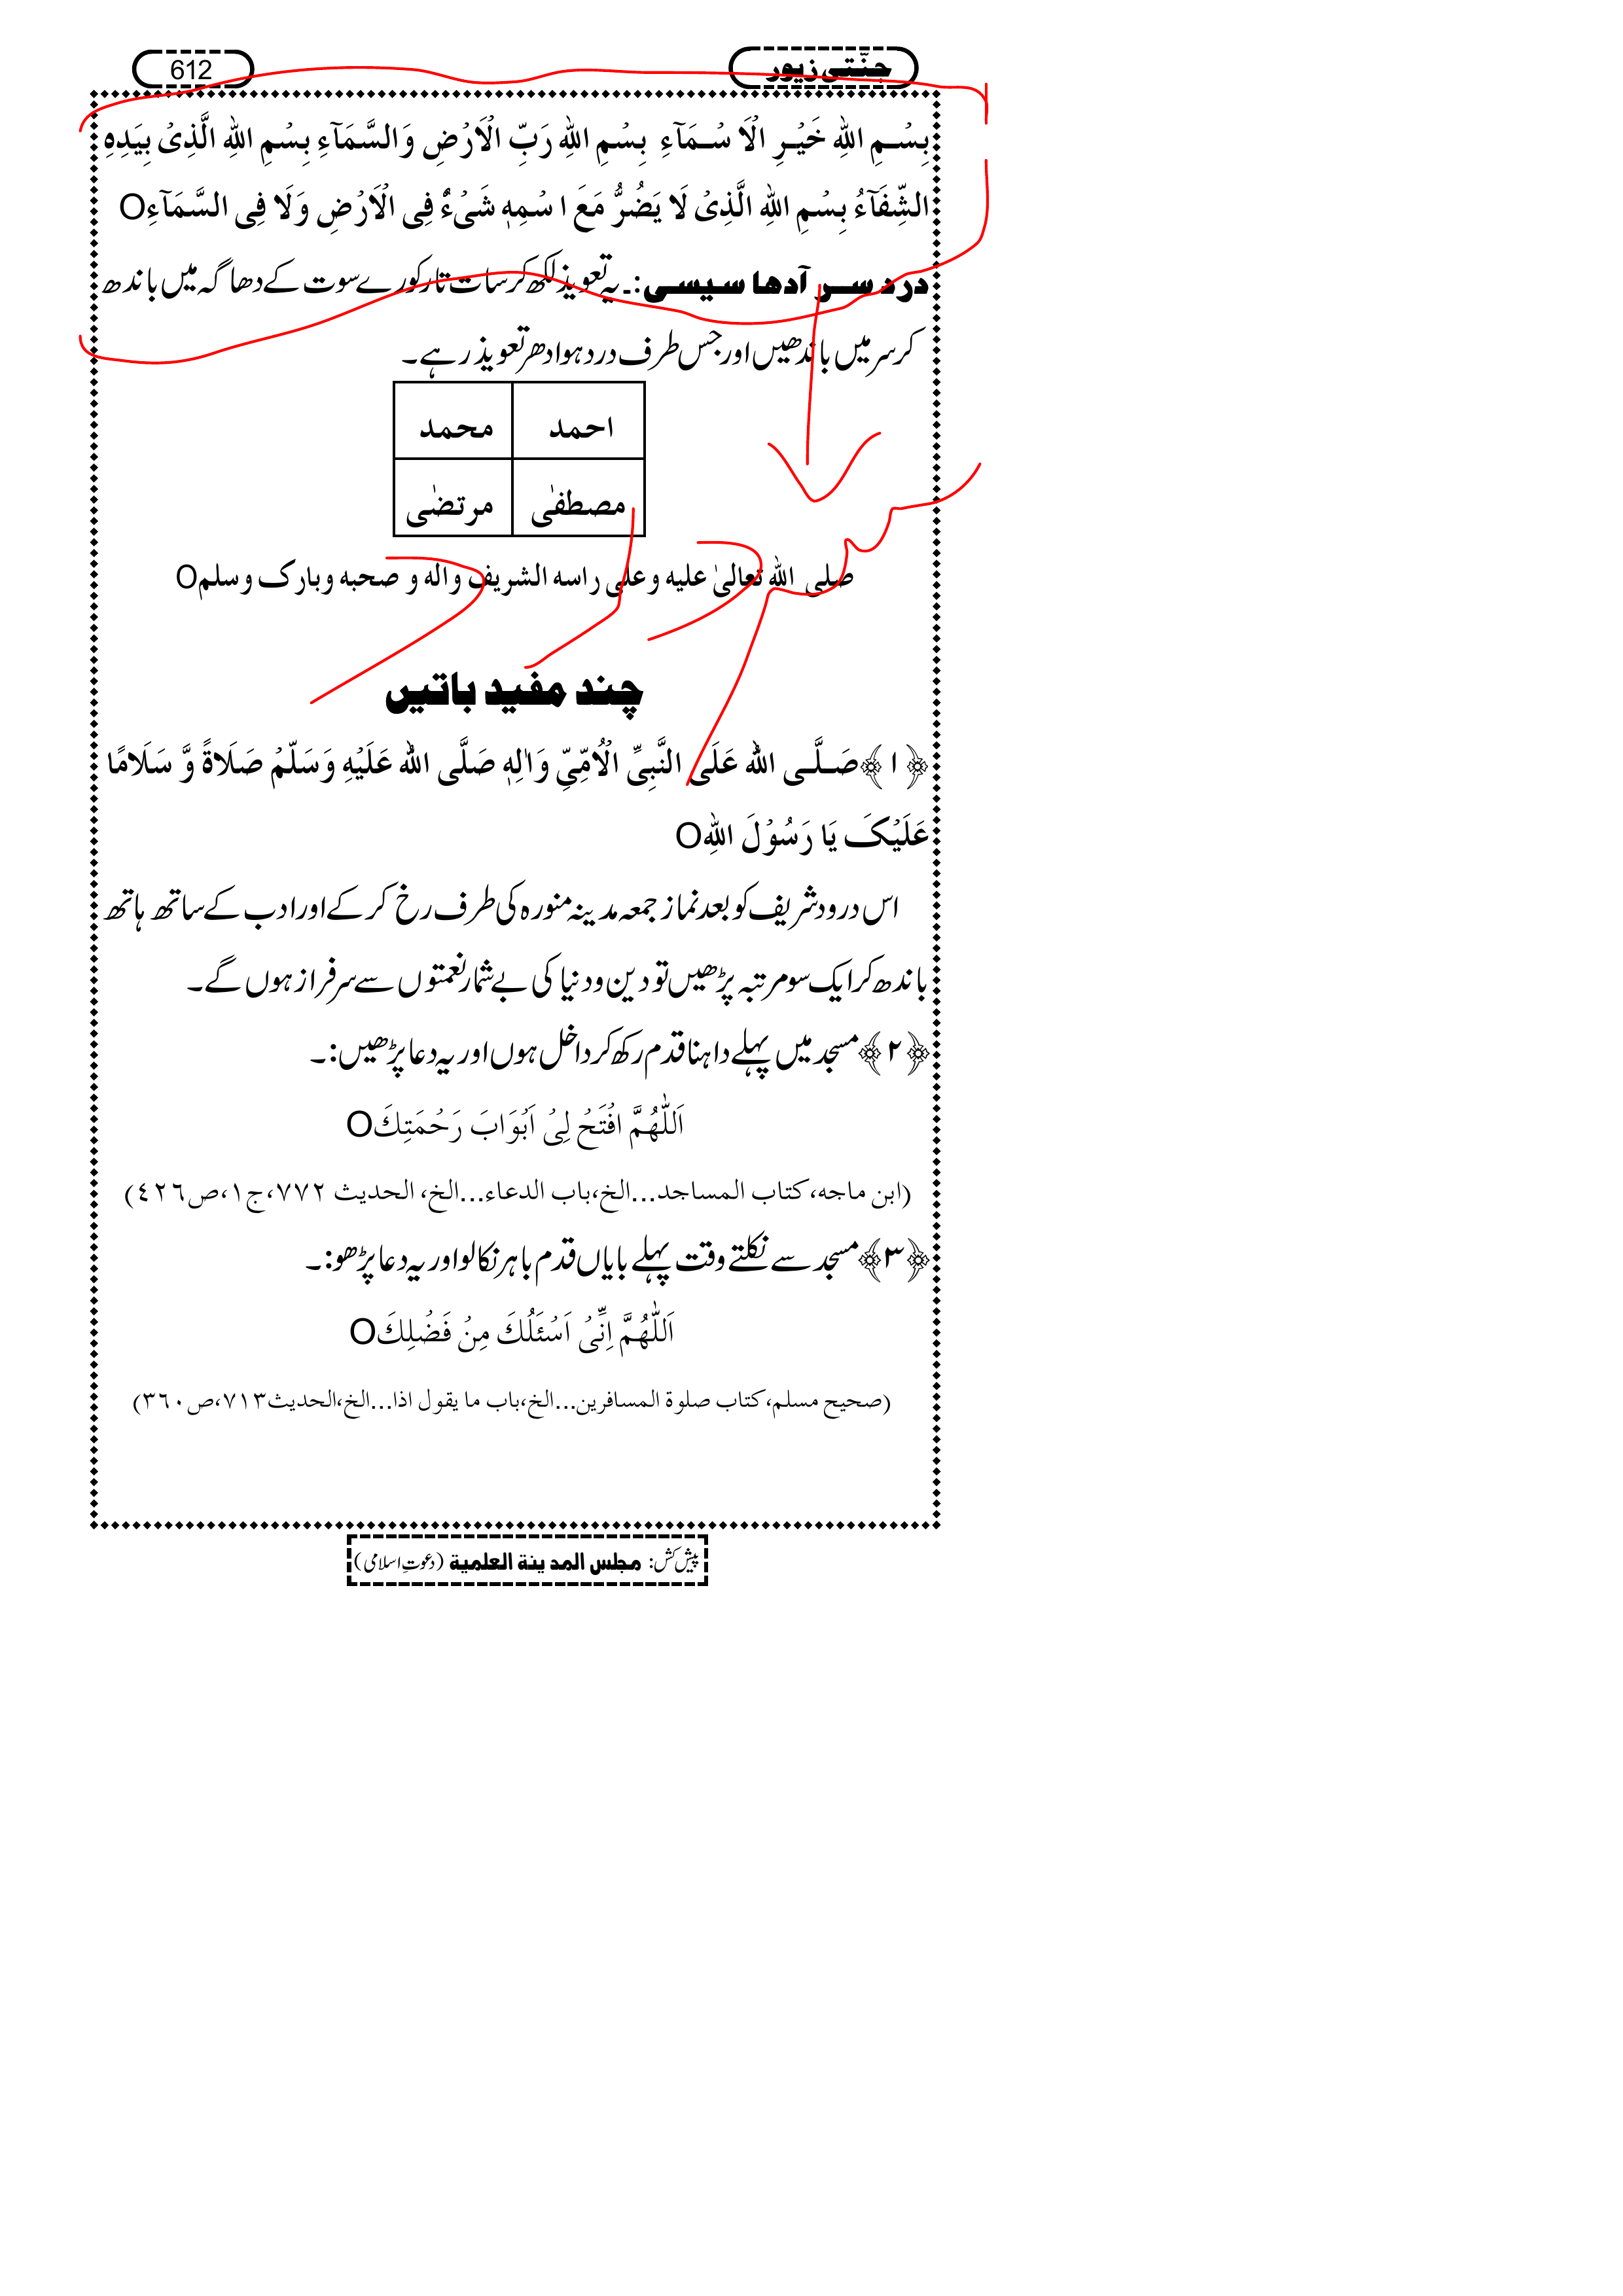 جنّتی زیور
612
بِسْمِ اللهِ خَيْرِ الْاَسْمَآءِ بِسْمِ اللهِ رَبِّ الْاَرْضِ وَالسَّمَآءِ بِسْمِ اللهِ الَّذِیْ بِيَدِهِ
الشِّفَآءُ بِسْمِ اللهِ الَّذِیْ لَا يَضُرُّ مَعَ اسْمِهٖ شَیْءٌ فِی الْاَرْضِ وَلَا فِی السَّمَآءِO
درد سر آدھا سیسی:۔ یہ تعویذ لکھ کر سات تار کورے سوت کے دھاگہ میں باندھ
کر سر میں باندھیں اور جس طرف درد ہو ادھر تعویذ رہے۔
احمد محمد
مصطفٰی مرتضٰی
صلی الله تعالیٰ علیه وعلی راسه الشریف واله و صحبه وبارک وسلمO
چند مفید باتیں
﴿۱﴾ صَلَّی اللهُ عَلَی النَّبِیِّ الْاُمِّیِّ وَاٰلِهٖ صَلَّی اللهُ عَلَيْهِ وَسَلَّمْ صَلَاةً وَّ سَلَامًا
عَلَيْکَ يَا رَسُوْلَ اللهِO
اس درود شریف کو بعد نماز جمعہ مدینہ منورہ کی طرف رخ کر کے اور ادب کے ساتھ ہاتھ
باندھ کر ایک سو مرتبہ پڑھیں تو دین و دنیا کی بے شمار نعمتوں سے سرفراز ہوں گے۔
﴿۲﴾ مسجد میں پہلے داہنا قدم رکھ کر داخل ہوں اور یہ دعا پڑھیں:۔
اَللّٰهُمَّ افْتَحْ لِیْ اَبْوَابَ رَحْمَتِكَO
(ابن ماجه، کتاب المساجد...الخ،باب الدعاء...الخ، الحدیث ٧٧٢،ج١،ص٤٢٦)
﴿۳﴾ مسجد سے نکلتے وقت پہلے بایاں قدم باہر نکالو اور یہ دعا پڑھو:۔
اَللّٰهُمَّ اِنِّیْ اَسْئَلُكَ مِنْ فَضْلِكَO
(صحیح مسلم،کتاب صلوة المسافرین...الخ،باب ما یقول اذا...الخ،الحدیث٧١٣،ص٣٦٠)
پیش کش: مجلس المدینة العلمیة (دعوتِ اسلامی)